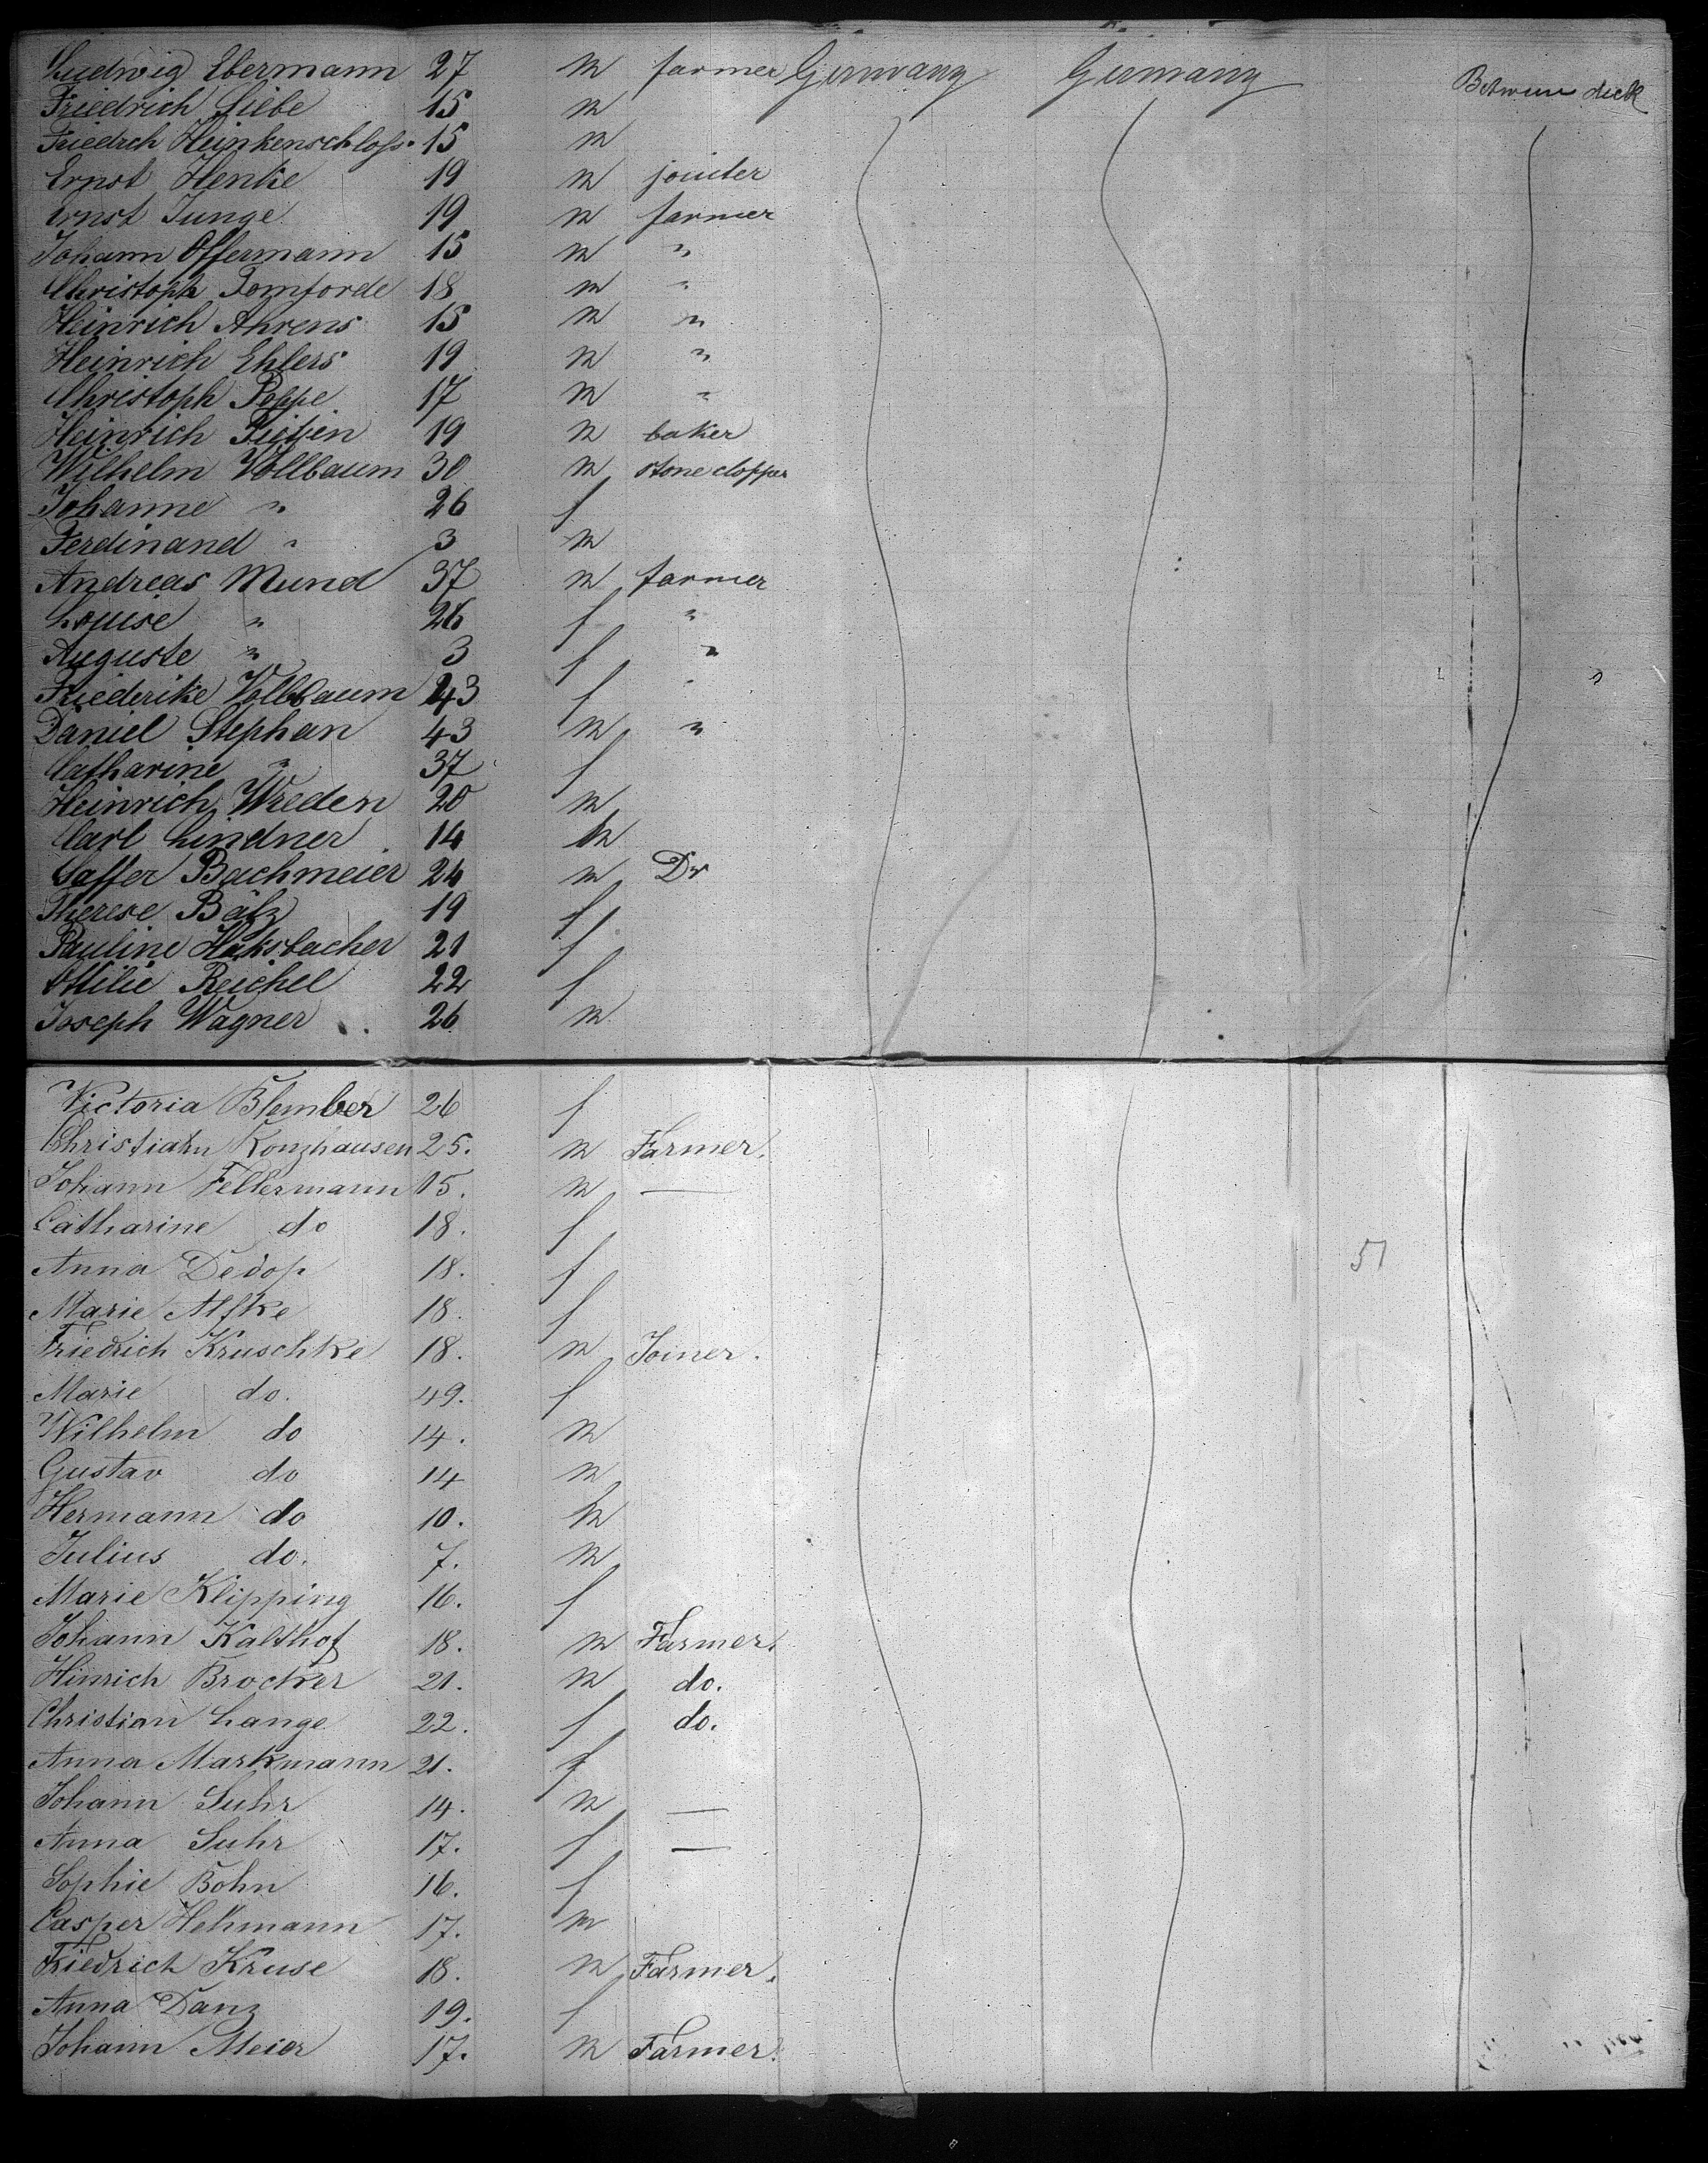 Ludwig Ebermann 27 m farmer Germany Germany Between deck
Friedrich Liebe 15 m
Friedrch Heinkenschloss 15 m
Ernst Henke 19 m jointer
Ernst Junge 19 m farmer
Johann Offermann 15 m "
Christoph Tomforde 18 m "
Heinrich Ahrens 15 m "
Heinrich Ehlers 19 m "
Christoph Poppe 17 m "
Heinrich Tietjen 19 m baker
Wilhelm Vollbaum 30 m stone clopper
Johanne " 26 f
Ferdinand " 3 m
Andreas Mund 37 m farmer
Louise " 26 f "
Auguste " 3 f "
Friederike Vollbaum 43 f "
Daniel Stephan 43 m "
Catharine " 37 f
Heinrich Wreden 20 m
Carl Lindner 14 m
Bachmeier 24 m Dr
Therese Bälz 19 f
Pauline 21 f
Ottilie Reichel 22 f
Joseph Wagner 26 m
Victoria Blember 26 f
Christiahn Konzhausen 25. m Farmer.
Johann Fellermann 15. m —
Catharine do 18. f
Anna Dedop 18. f 51
Marie Alfke 18. f
Friedrich Kruschke 18. m Joiner.
Marie do. 49. f
Wilhelm do 14. m
Gustav do 14 m
Hermann do 10. m
Julius do. 7. m
Marie Klipping 16. f
Johann Kalthof 18. m Farmer.
Hinrich Brocker 21. m do.
Christian Lange 22. f do.
Anna Markmann 21. f
Johann Suhr 14. m —
Anna Suhr 17. f —
Sophie Bohn 16. f
Casper Hellmann 17. m
Friedrich Kruse 18. m Farmer.
Anna Danz 19. f
Johann Meier 17. m Farmer.